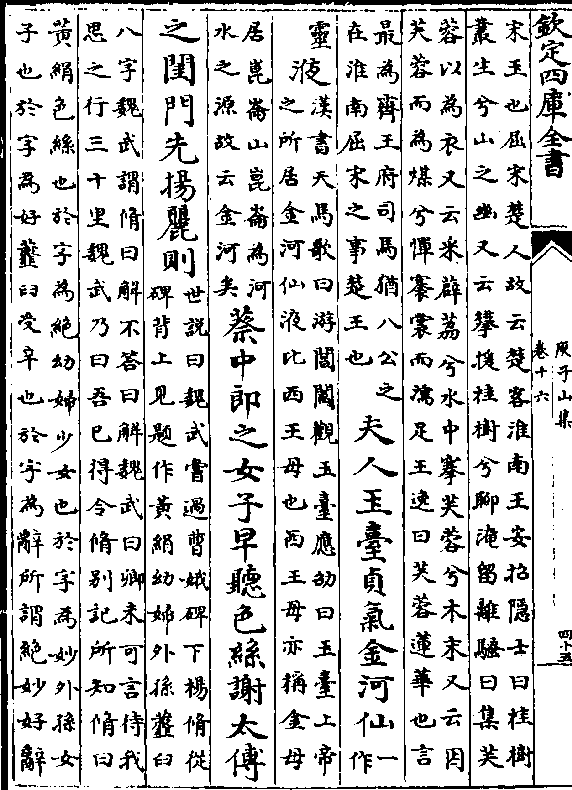 欽定四庫全書
庾子山集
卷十六
四十五
宋玉也屈宋楚人故云楚客淮南王安招隱士曰桂樹
叢生兮山之幽又云攀援桂樹兮聊淹留離騷曰集芙
蓉以為衣又云采薜荔兮水中搴芙蓉兮木末又云因
芙蓉而為媒兮憚褰裳而濡足王逸曰芙蓉蓮華也言
最為齊王府司馬猶八公之
在淮南屈宋之事楚王也
夫人玉臺貞氣金河仙一作
靈液
漢書天馬歌曰游閶闔觀玉臺應劭曰玉臺上帝
之所居金河仙液比西王母也西王母亦稱金母
居崑崙山崑崙為河
水之源故云金河矣
蔡中郎之女子早聽色絲謝太傅
之閨門先揚麗則
世說曰魏武嘗過曹娥碑下楊脩從
碑背上見題作黃絹幼婦外孫虀臼
八字魏武謂脩曰解不答曰解魏武曰卿未可言待我
思之行三十里魏武乃曰吾已得令脩別記所知脩曰
黃絹色絲也於字為絕幼婦少女也於字為妙外孫女
子也於字為好虀臼受辛也於字為辭所謂絕妙好辭